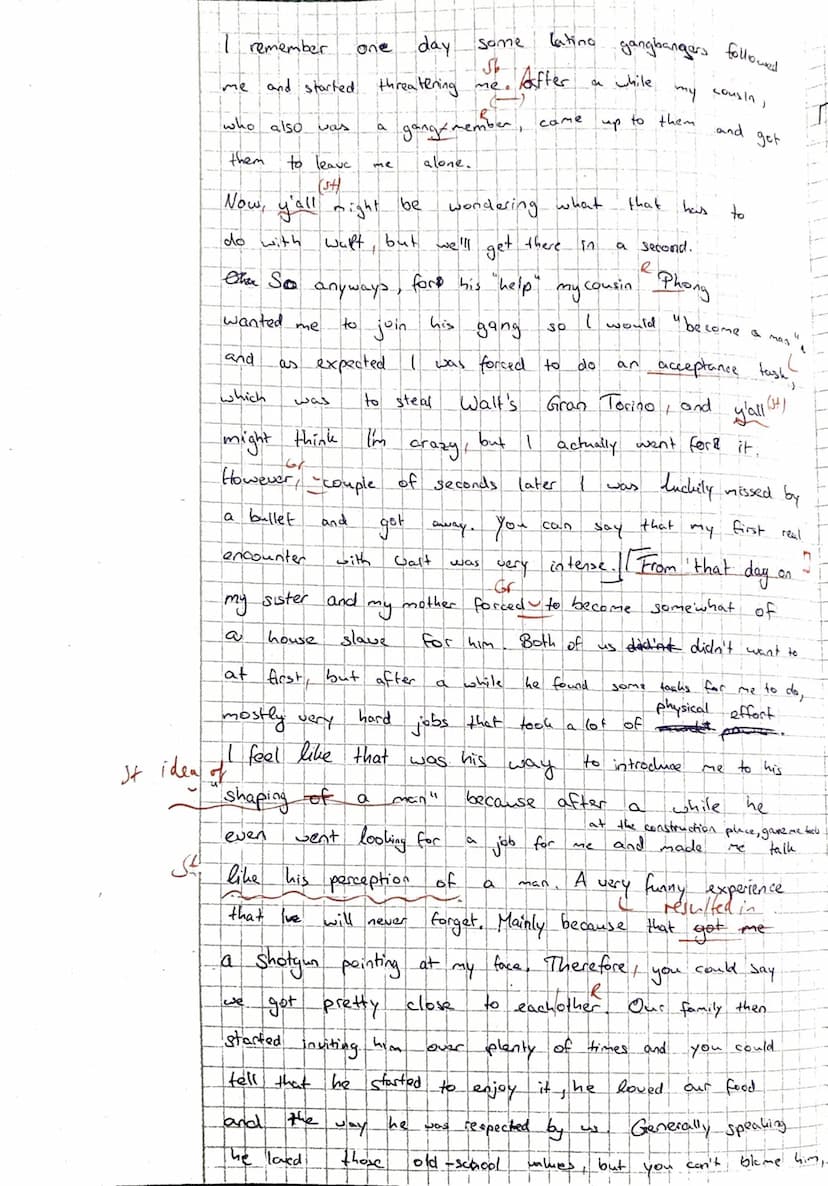 I remember one day some latino gangbangers followed
St
me and started threatening me. After a while my cousin,
R
who also was a gang/member, came up to them and got
them to leave me alone.
(St)
Now, y'all might be wondering what that has to
do with Walt, but we'll get there in a second.
So anyways, for his "help" my cousin Phong
R
wanted me to join his gang so I would "become a man",
and as expected I was forced to do an acceptance task,
which was to steal Walt's Gran Torino, and y'all (St)
might think I'm crazy, but I actually went for it.
Gr
However, couple of seconds later I was luckily missed by
a bullet and got away. You can say that my first real
encounter with Walt was very intense. From that day on
Gr
my sister and my mother forced to become somewhat of
a house slave for him. Both of us didn't didn't want to
at first, but after a while he found some tasks for me to do,
mostly very hard jobs that took a lot of physical effort.
I feel like that was his way to introduce me to his
St idea of
"shaping of a man" because after a while he
even went looking for a job for me at the construction place, gave me and made me talk
St
like his perception of a man. A very funny experience
resulted in
that I will never forget. Mainly because that got me
a shotgun pointing at my face. Therefore, you could say
R
we got pretty close to each/other. Our family then
started inviting him over plenty of times and you could
tell that he started to enjoy it, he loved our food
and the way he was respected by us. Generally speaking
he loved those old-school values, but you can't blame him,